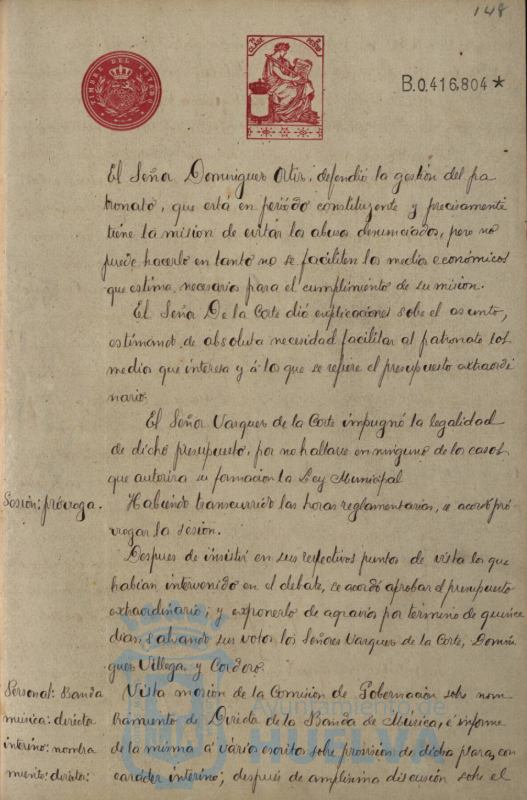 148
TIMBRE DEL ESTADO
B.0.416.804*
El Señor Dominguez Ortiz, defendió la gestión del pa
tronato, que está en periódo constituyente y precisamente
tiene la mision de evitar los abusos denunciados, pero no
puede hacerlo en tanto no se faciliten los medios económicos
que estima, necesarios para el cumplimiento de su mision.
El Señor De la Corte dió explicaciones sobre el asunto,
estimando de absoluta necesidad facilitar al patronato los
medios que interesa y á los que se refiere el presupuesto extraordi
nario.
El Señor Vazquez de la Corte impugnó la legalidad
de dicho presupuesto, por no hallarse en ninguno de los casos
que autoriza su formacion la Ley Municipal
Sesión: próroga.
Habiendo transcurrido las horas reglamentarias, se acordó pró-
rrogar la sesion.
Despues de insistir en sus respectivos puntos de vista los que
habian intervenido en el debate, se acordó aprobar el presupuesto
extraordinario; y exponerlo de agravios por termino de quince
dias, salvando sus votos los Señores Vazquez de la Corte, Domin
guez Villega y Cordero.
Personal: Banda
música: director
interino: nombra
miento: director:
Vista moción de la Comision de Gobernación sobre nom
bramiento de Director de la Banda de Música, é informe
de la misma á varios escritos sobre provision de dicha plaza, con
carácter interino; después de amplísima discusión sobre el
Ayuntamiento de
HUELVA